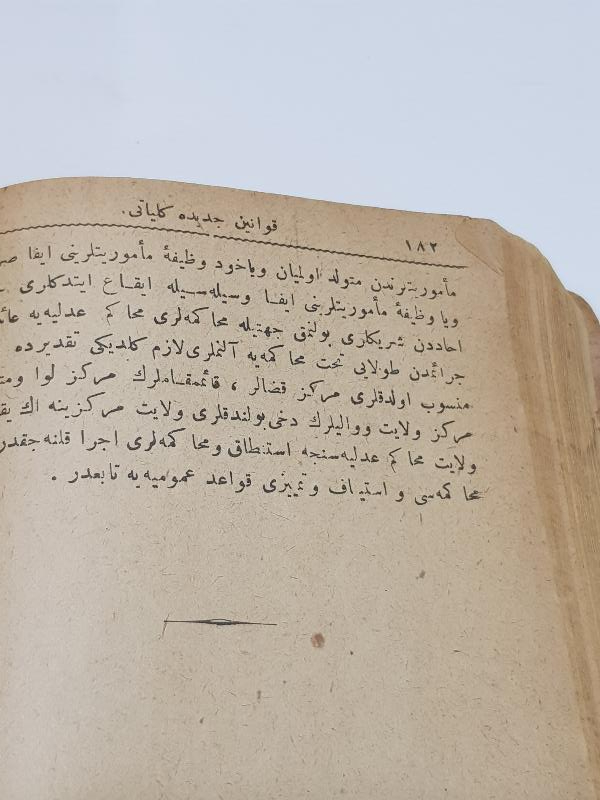 ١٨٢
قوانين جديده كلياتى.
مأموريتلرندن متولد اولميان وياخود وظيفهٔ مأموريتلرينى ايفا
ويا وظيفهٔ مأموريتلرينى ايفا وسيله‌سيله ايقاع ايتدكلرى
احاددن شريكلرى بولنمق جهتيله محاكمه‌لرى محاكم عدليه‌يه
جرائمدن طولايى تحت محاكمه‌يه آلنملرى لازم كلديكى تقديرده
منسوب اولدقلرى مركز قضالر ، قائممقاملرك مركز لوا
مركز ولايت وواليلرك دخى بولندقلرى ولايت مركزينه اك
ولايت محاكم عدليه‌سنجه استنطاق ومحاكمه‌لرى اجرا قلنه‌جقدر
محاكمه‌سى و استيناف و تمييزى قواعد عموميه‌يه تابعدر .